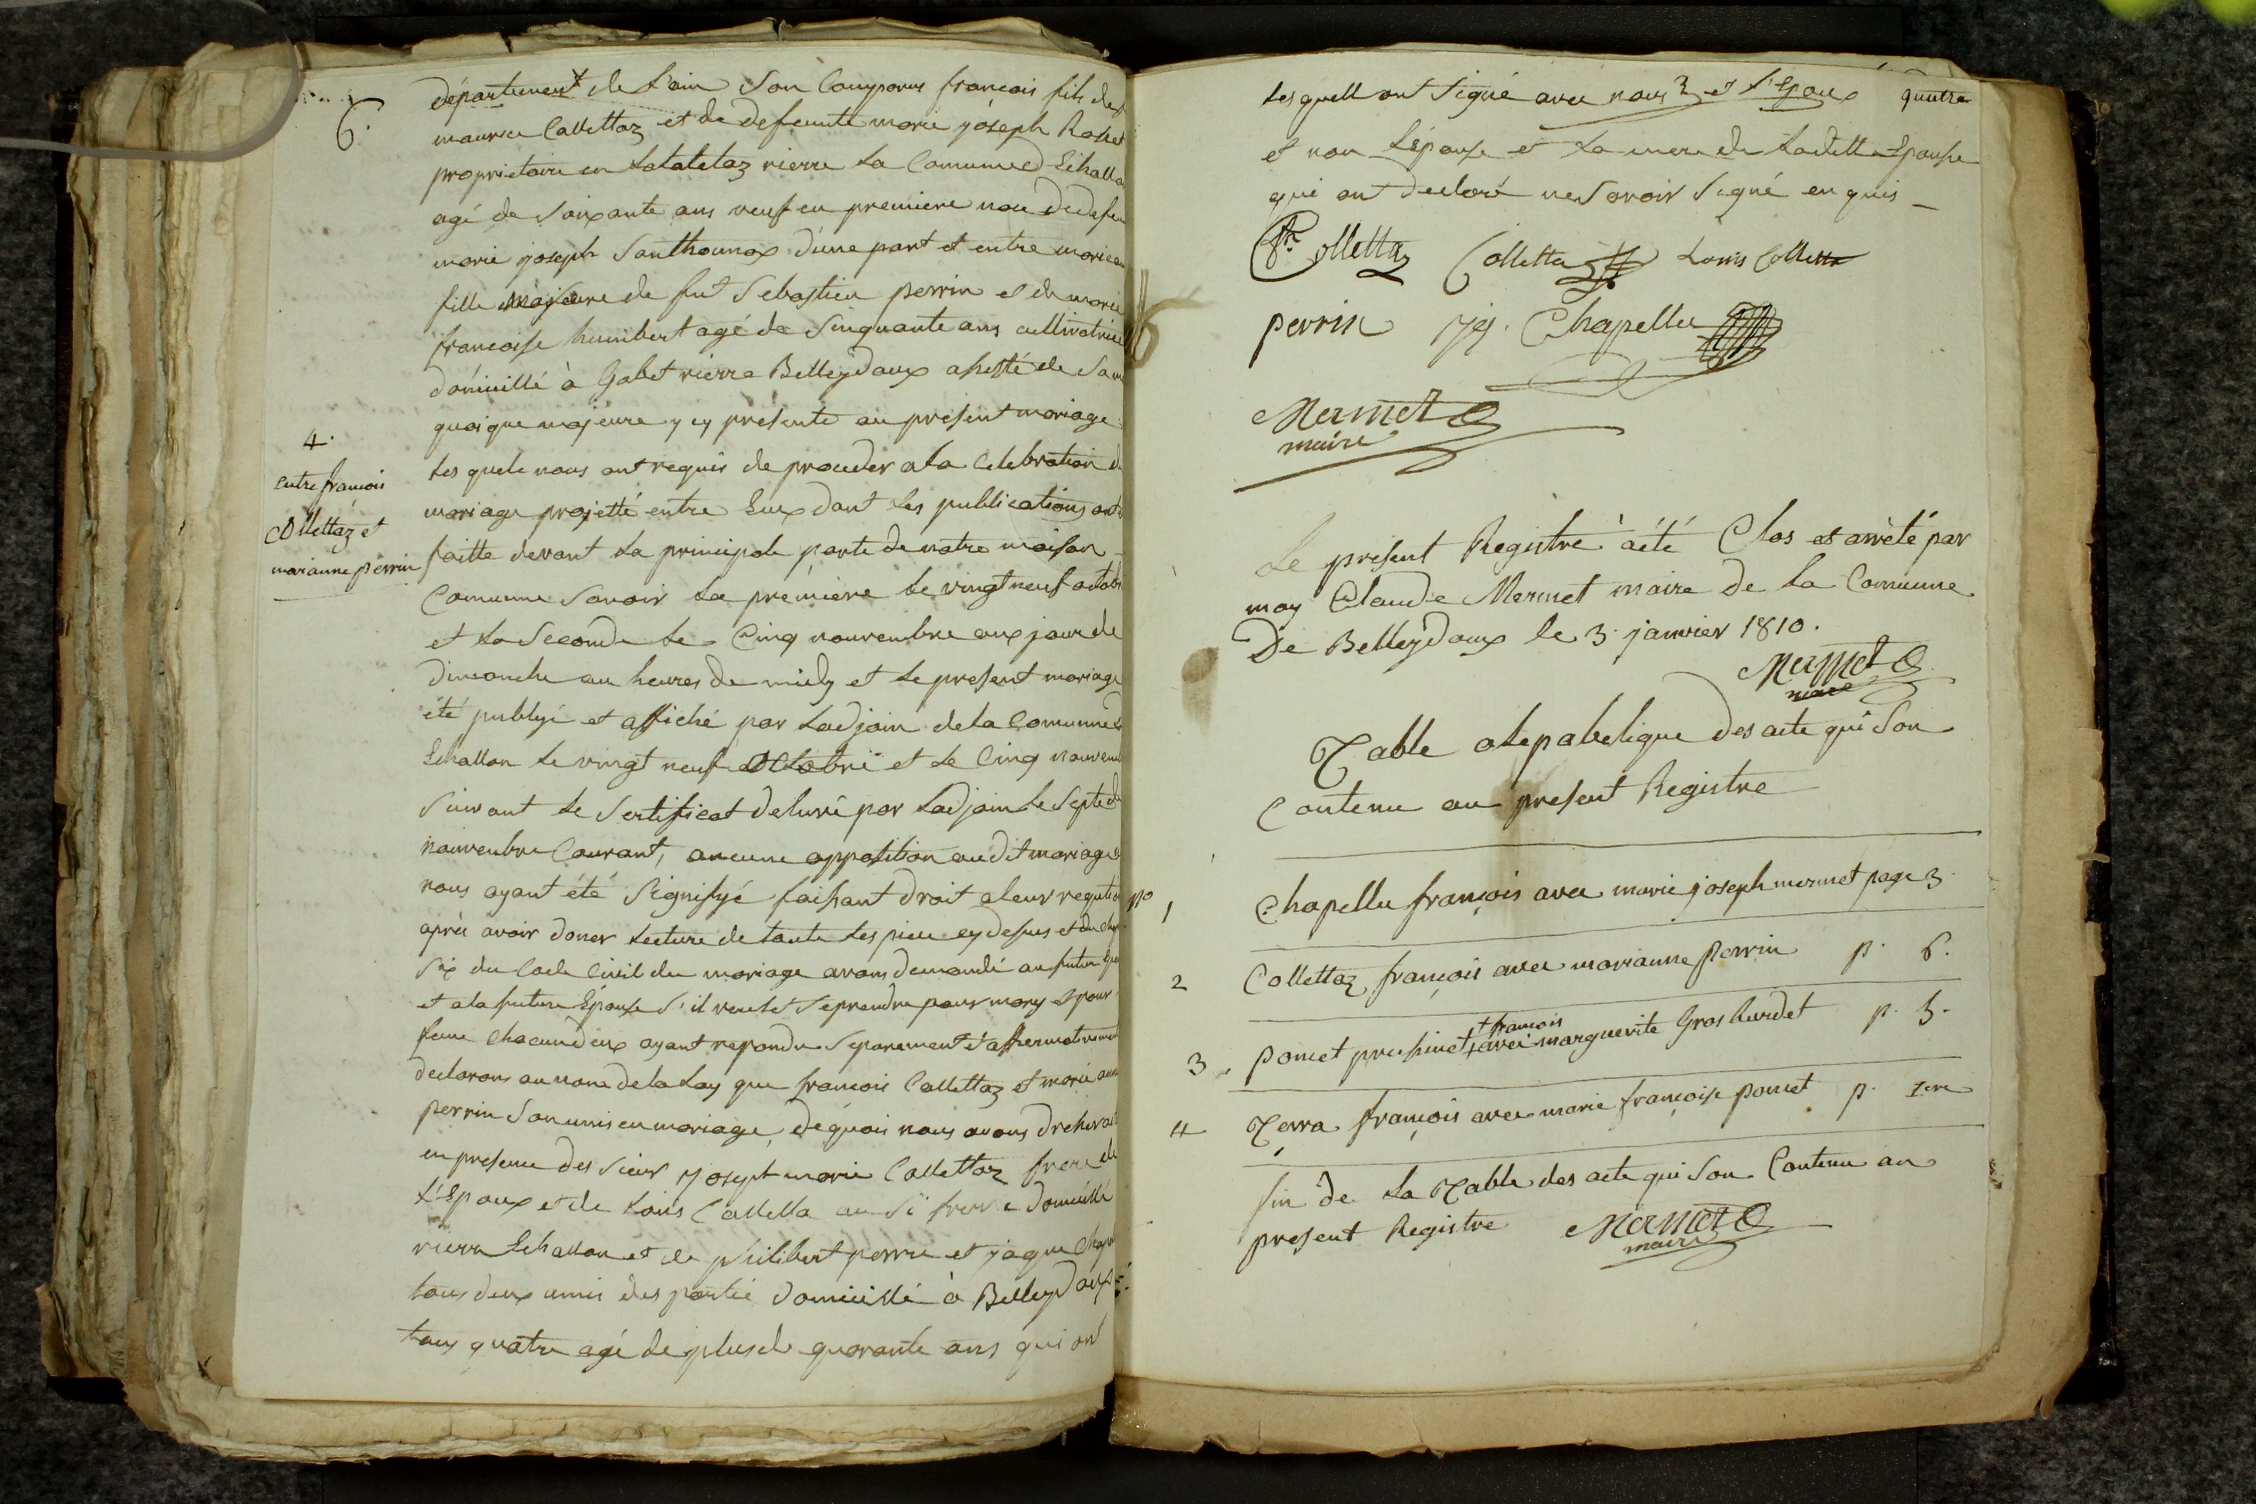 6.
département de L'ain Son Comparus francois fils de
maurice Collettaz et de defeunte marie joseph Rosset
proprietaire en Latalettaz rierre La Comune d Echallo
agé de Soixante ans veuf en premiere noce de defeu
marie joseph Santhounax d'une part et entre marie an
fille majeure de fut Sebastien perrin et de marie
francoise humbert agé de Sinquante ans cultivatrice
domicillé à Gobet rierre Belleydoux assisté de Sa m
quoi que majeure y cy présente au présent mariage
4.
entre francois
Collettaz et
marianne perrin
Les quels nous ont requis de proceder a La Celebration d
mariage projetté entre Eux dont Les publications ont é
faitte devant La principale porte de notre maison
Comunne Savoir La première Le vingt neuf octobr
et La Seconde Le Cinq nouvembre aux jour de
dimanche au heures de midy et Le present mariage
été publyé et affiché par Ladjoin de La Comunne d
Echallon Le vingt neuf octobre et Le Cinq nouvem
Suivant Le Sertificat delivré par Ladjoin Le Septe d
nouvembre Courant, aucune opposition audit mariage
nous ayant été Signifyé faisant droit a leur requti
après avoir doner Lecture de toute Les piece cy desus et du chap
Six du Code Civil du mariage avons demandé au futur Epo
et a la future Epouse S'il veulet Se prendre pour mary et pour
feme Chacun d'eux ayant repondu Separement et affermativement
declarons au nom de la Loy que francois Collettaz et marie anne
perrin Son unis en mariage, de quois nous avons dressé
en presence des Sieur joseph marie Collettaz frere de
L'Epoux et de Louis Colletta au Si frere domicillé
rierre Echallon et de philibert perrin et jaque Chap
tous deux amis des partie domicillé à Belleydoux
tous quatre agé de plus de quarante ans qui ont
Lesquell ont Signé avec nous et L'Epoux quatre
et non L'épouse et La mere de Laditte Epouse
qui ont declaré ne Savoir Signé en quis _
fr. Colletta Colletta Louis Colletta
perrin Jq. Chapellu
Mermet
maire
Le présent Registre à été Clos et arrèté par
moy Claude Mermet maire de La Comunne
De Belleydoux le 3 janvier 1810.
Mermet
maire
Table alepabetique des acte qui Son
Contenu au present Registre
no 1 Chapellu françois avec marie joseph mermet page 3
2 Collettaz françois avec marianne perrin p. 6.
+ francois
3. poncet prussinet + avec marguerite Grosburdet p. 5.
4 Terra françois avec marie françoise poncet p. 1ere
fin de La Table des acte qui Son Contenu au
present Registre Mermet
maire